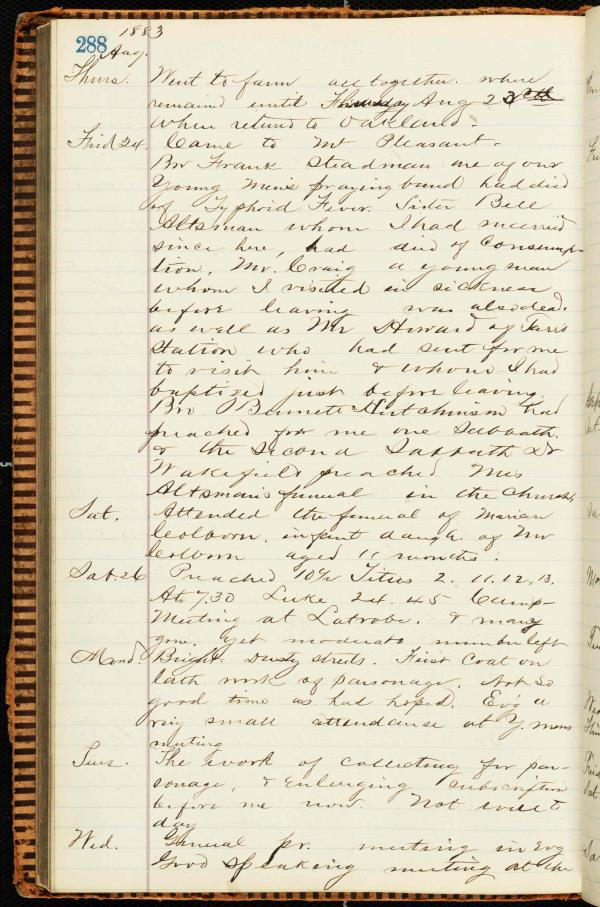 1883
288
Aug.
Thurs. Went to farm all together. where
remained until Thursday Aug 23rd
when returned to Oakland.
Frid 24. Came to Mt Pleasant.
Bro Frank Steadman one of our
Young Mens praying band had died
of Typhoid Fever. Sister Bell
Altsman whom I had married
since here, had died of Consump-
tion, Mr. Craig a young man
whom I visited in sickness
before leaving was also dead.
as well as Mr Howard of Tarrs
Station who had sent for me
to visit him & whom I had
baptized just before leaving.
Bro Bennett Hutchinson had
preached for me one Sabbath.
& the second Sabbath Dr
Wakefield preached Mrs
Altsman's funeral in the Church,
Sat. Attended the funeral of Marian
Colborn, infant daugh. of Mr
Colborn aged 11 months.
Sab. 26 Preached 10½ Titus 2. 11.12.13.
At 7.30 Luke 24. 45 Camp-
Meeting at Latrobe. & many
gone. Yet moderate number left
Mond. Bright. Dusty streets. First Coat on
lath work of parsonage. Not so
good time as had hoped. Ev'g a
very small attendance at Y. mens
meeting
Tues. The work of collecting for par-
sonage, & enlarging subscription
before me now. Not well to
day
Wed. General pr. meeting in Evg
Good speaking meeting at the